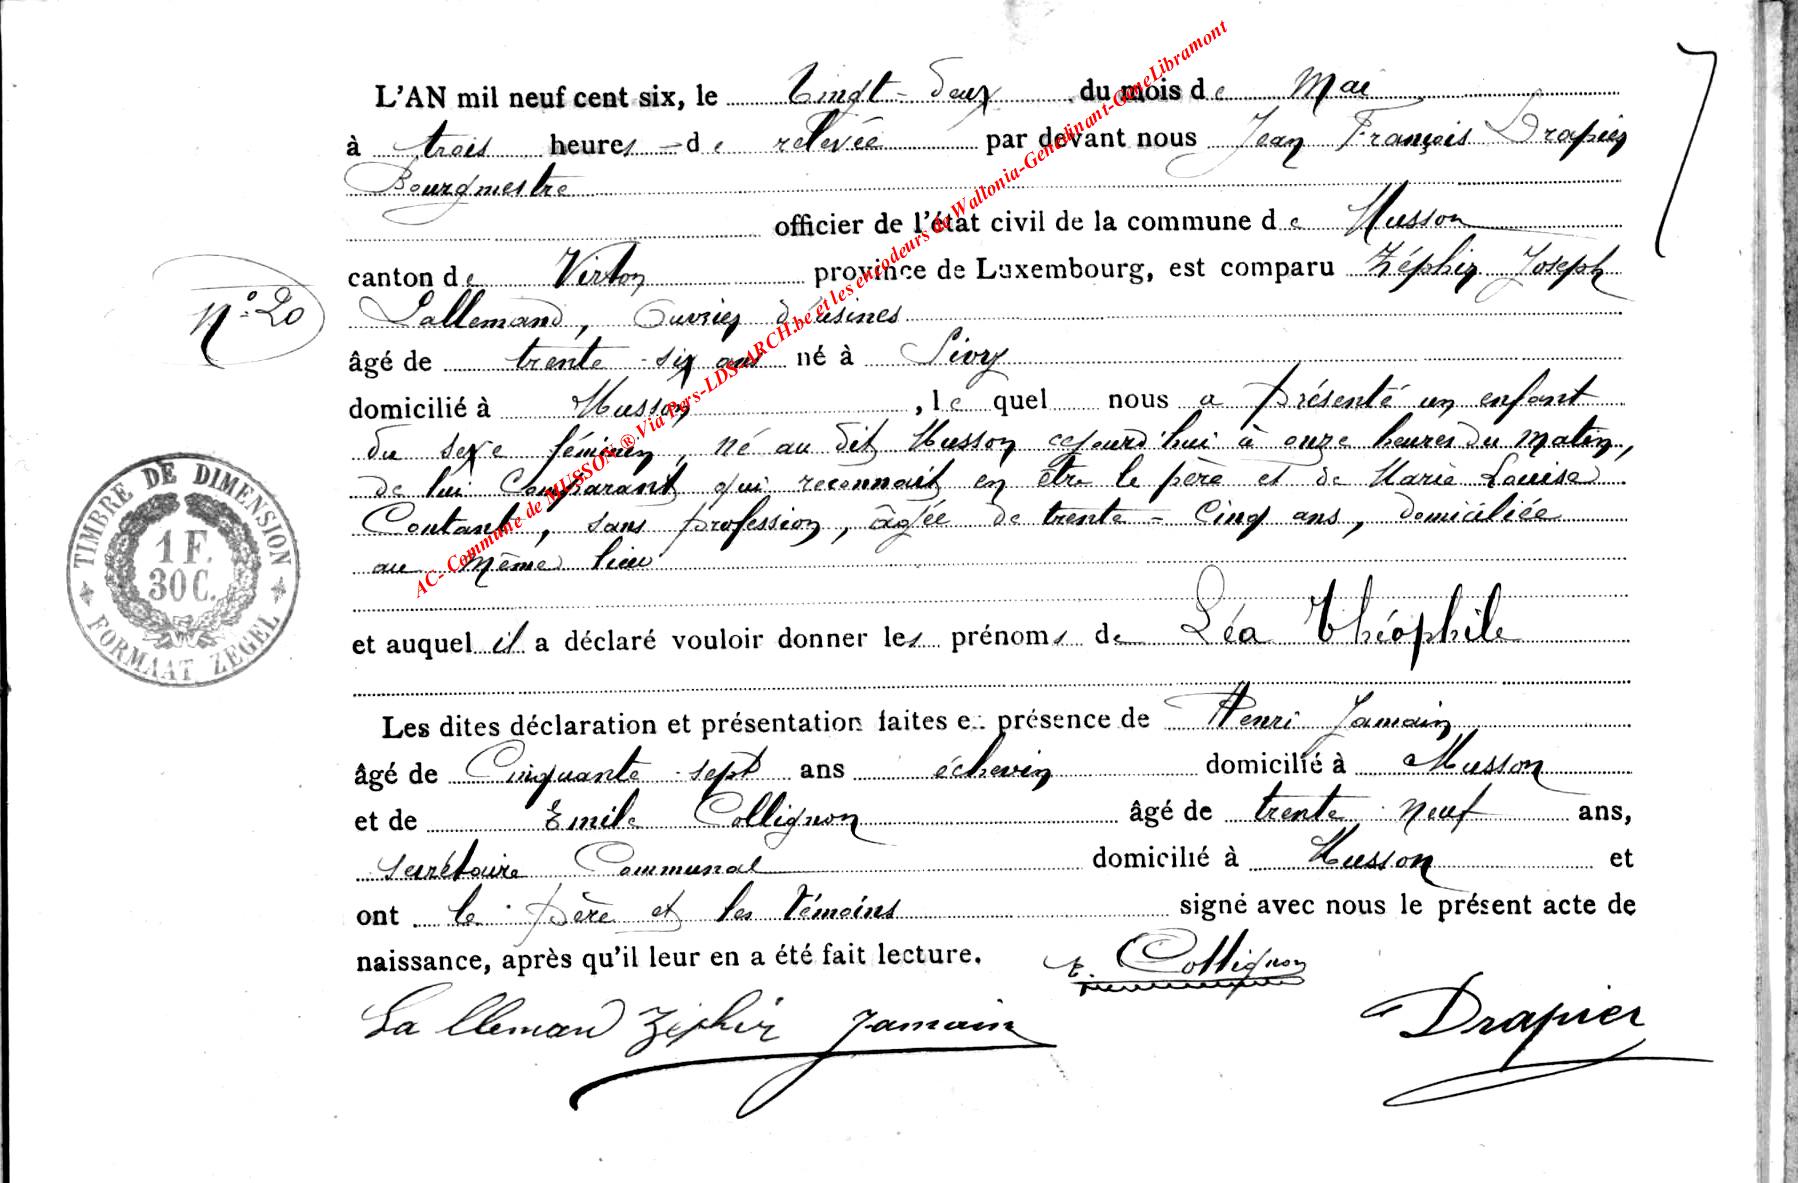 L'AN mil neuf cent six, le Vingt-deux du mois de Mai
à trois heures de relevée par devant nous Jean François Drapier
Bourgmestre
officier de l'état civil de la commune de Musson
canton de Virton province de Luxembourg, est comparu Zéphir Joseph
N° 20
Lallemand, Ouvrier d'usines
âgé de trente-six ans né à Sivry
domicilié à Musson, le quel nous a présenté un enfant
du sexe féminin, né au dit Musson cejourd'hui à onze heures du matin,
de lui Comparant qui reconnait en être le père et de Marie Louise
Coutant, sans profession, âgée de trente-Cinq ans, domiciliée
au même lieu
et auquel il a déclaré vouloir donner les prénoms de Léa Théophile
Les dites déclaration et présentation faites en présence de Henri Jamain
âgé de Cinquante-sept ans échevin domicilié à Musson
et de Emile Collignon âgé de trente-neuf ans,
secrétaire Communal domicilié à Musson et
ont le père et les témoins signé avec nous le présent acte de
naissance, après qu'il leur en a été fait lecture.
E. Collignon
Lallemand Zéphir Jamain Drapier
TIMBRE DE DIMENSION
1 F.
30 C.
FORMAAT ZEGEL
AC- Commune de MUSSON ® Via Pers-LDS-ARCH.be et les encodeurs de Wallonia-Genedinant-GeneLibramont